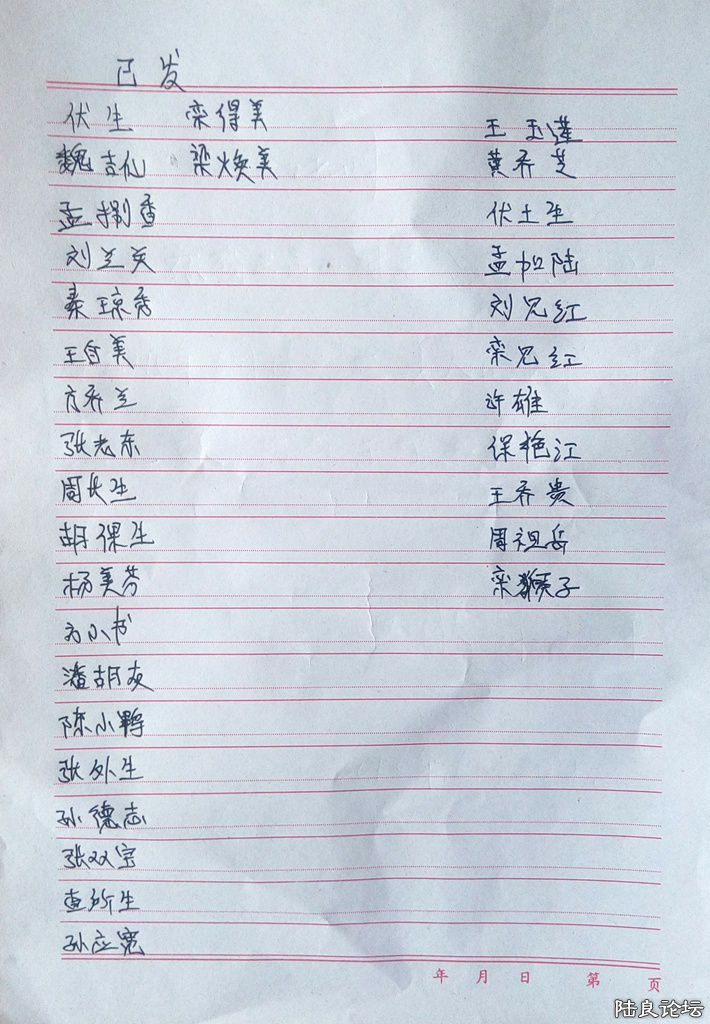 已发
伏生 栾得美 王玉莲
魏吉仙 梁焕美 黄乔芝
孟捌香 伏土生
刘兰英 孟加陆
秦琼秀 刘兄红
王合美 栾兄红
方乔兰 许雄
张老东 保艳江
周长生 王乔贵
胡保生 周祖岳
杨美芬 栾猴子
方小书
潘胡灰
陈小鸭
张外生
孙德志
张双宝
查所生
孙应宽
年 月 日 第 页
陆良论坛